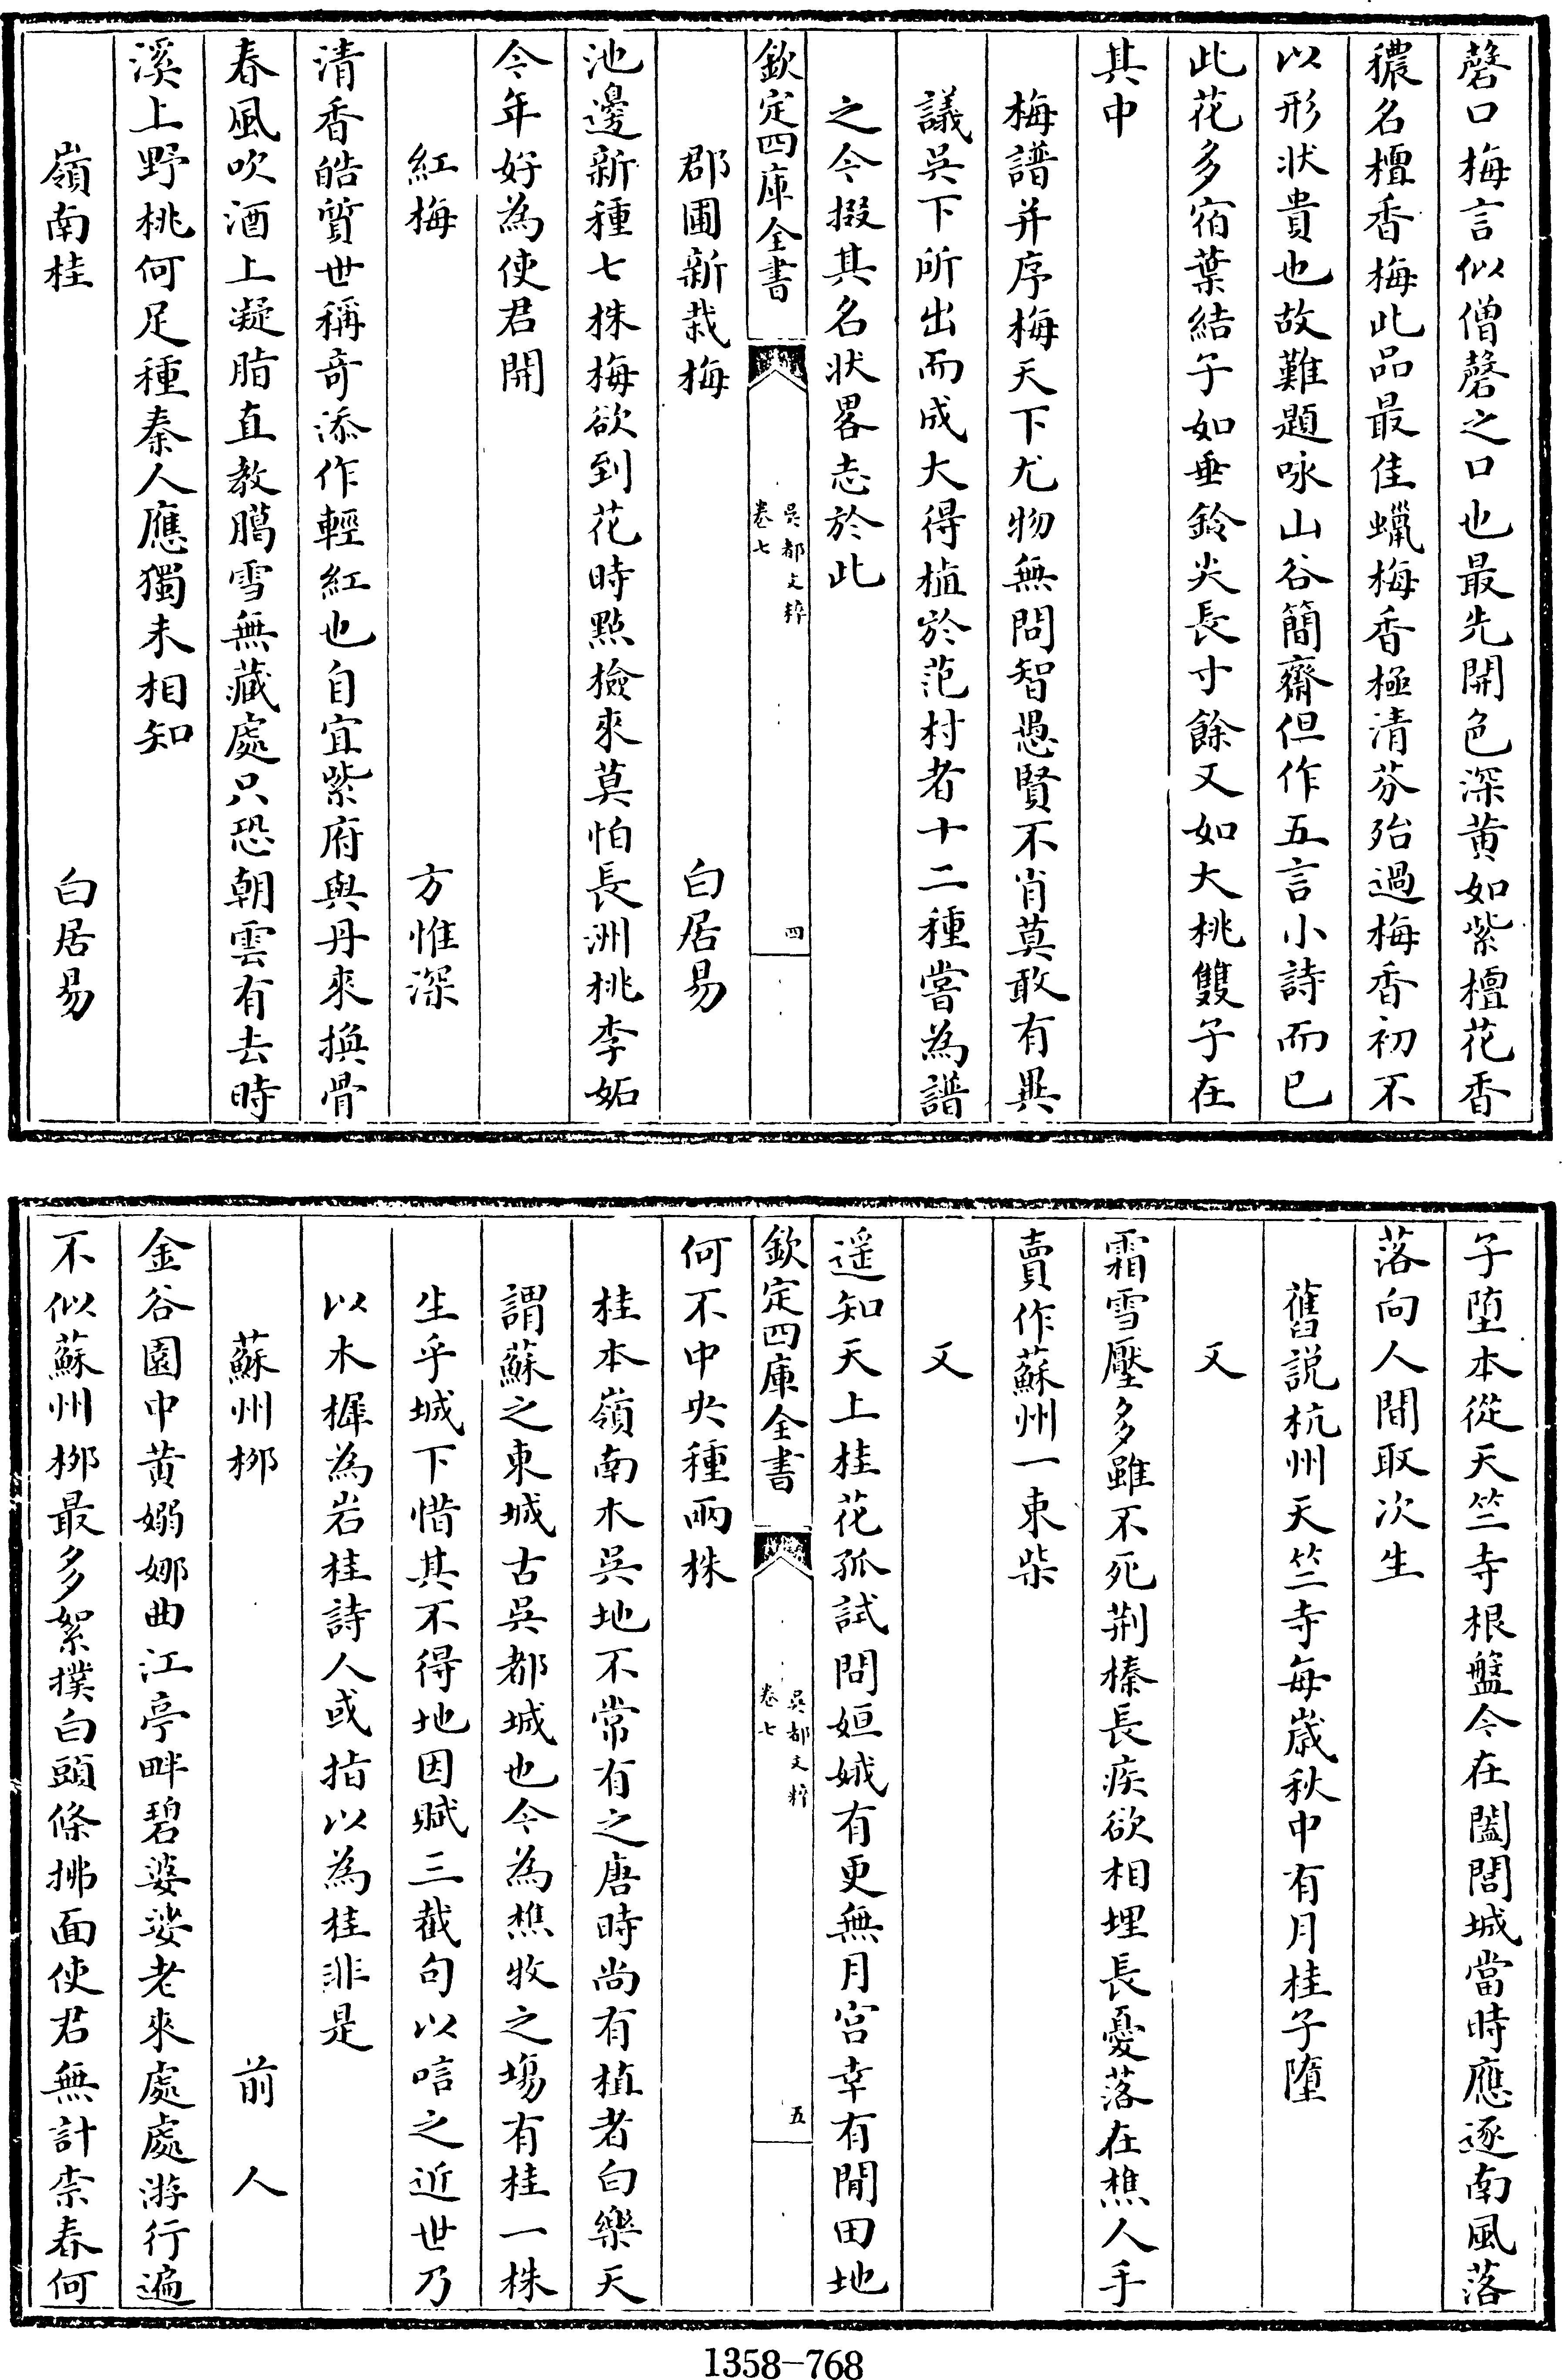 磬口梅言似僧磬之口也最先開色深黄如紫檀花香
穠名檀香梅此品最佳蠟梅香極清芬殆過梅香初不
以形狀貴也故難題咏山谷簡齋但作五言小詩而已
此花多宿葉結子如垂鈴尖長寸餘又如大桃雙子在
其中
梅譜并序梅天下尤物無問智愚賢不肖莫敢有異
議吳下所出而成大得植於范村者十二種嘗為譜
之今掇其名狀畧志於此
欽定四庫全書
吳都文粹
卷七
四
郡圃新栽梅 白居易
池邊新種七株梅欲到花時㸃檢來莫怕長洲桃李妬
今年好為使君開
紅梅 方惟深
清香皓質世稱竒添作輕紅也自宜紫府與丹來換骨
春風吹酒上凝脂直教臈雪無藏處只恐朝雲有去時
溪上野桃何足種秦人應獨未相知
嶺南桂 白居易
子堕本從天竺寺根盤今在闔閭城當時應逐南風落
落向人間取次生
舊説杭州天竺寺每歲秋中有月桂子墮
又
霜雪壓多雖不死荆榛長疾欲相埋長憂落在樵人手
賣作蘇州一束柴
又
遥知天上桂花孤試問姮娥有更無月宫幸有閒田地
欽定四庫全書
吳都文粹
卷七
五
何不中央種兩株
桂本嶺南木吳地不常有之唐時尚有植者白樂天
謂蘇之東城古吳都城也今為樵牧之塲有桂一株
生乎城下惜其不得地因賦三截句以唁之近世乃
以木樨為岩桂詩人或指以為桂非是
蘇州栁 前人
金谷園中黄嫋娜曲江亭畔碧婆娑老來處處游行遍
不似蘇州栁最多絮撲白頭條拂面使君無計柰春何
1358-768